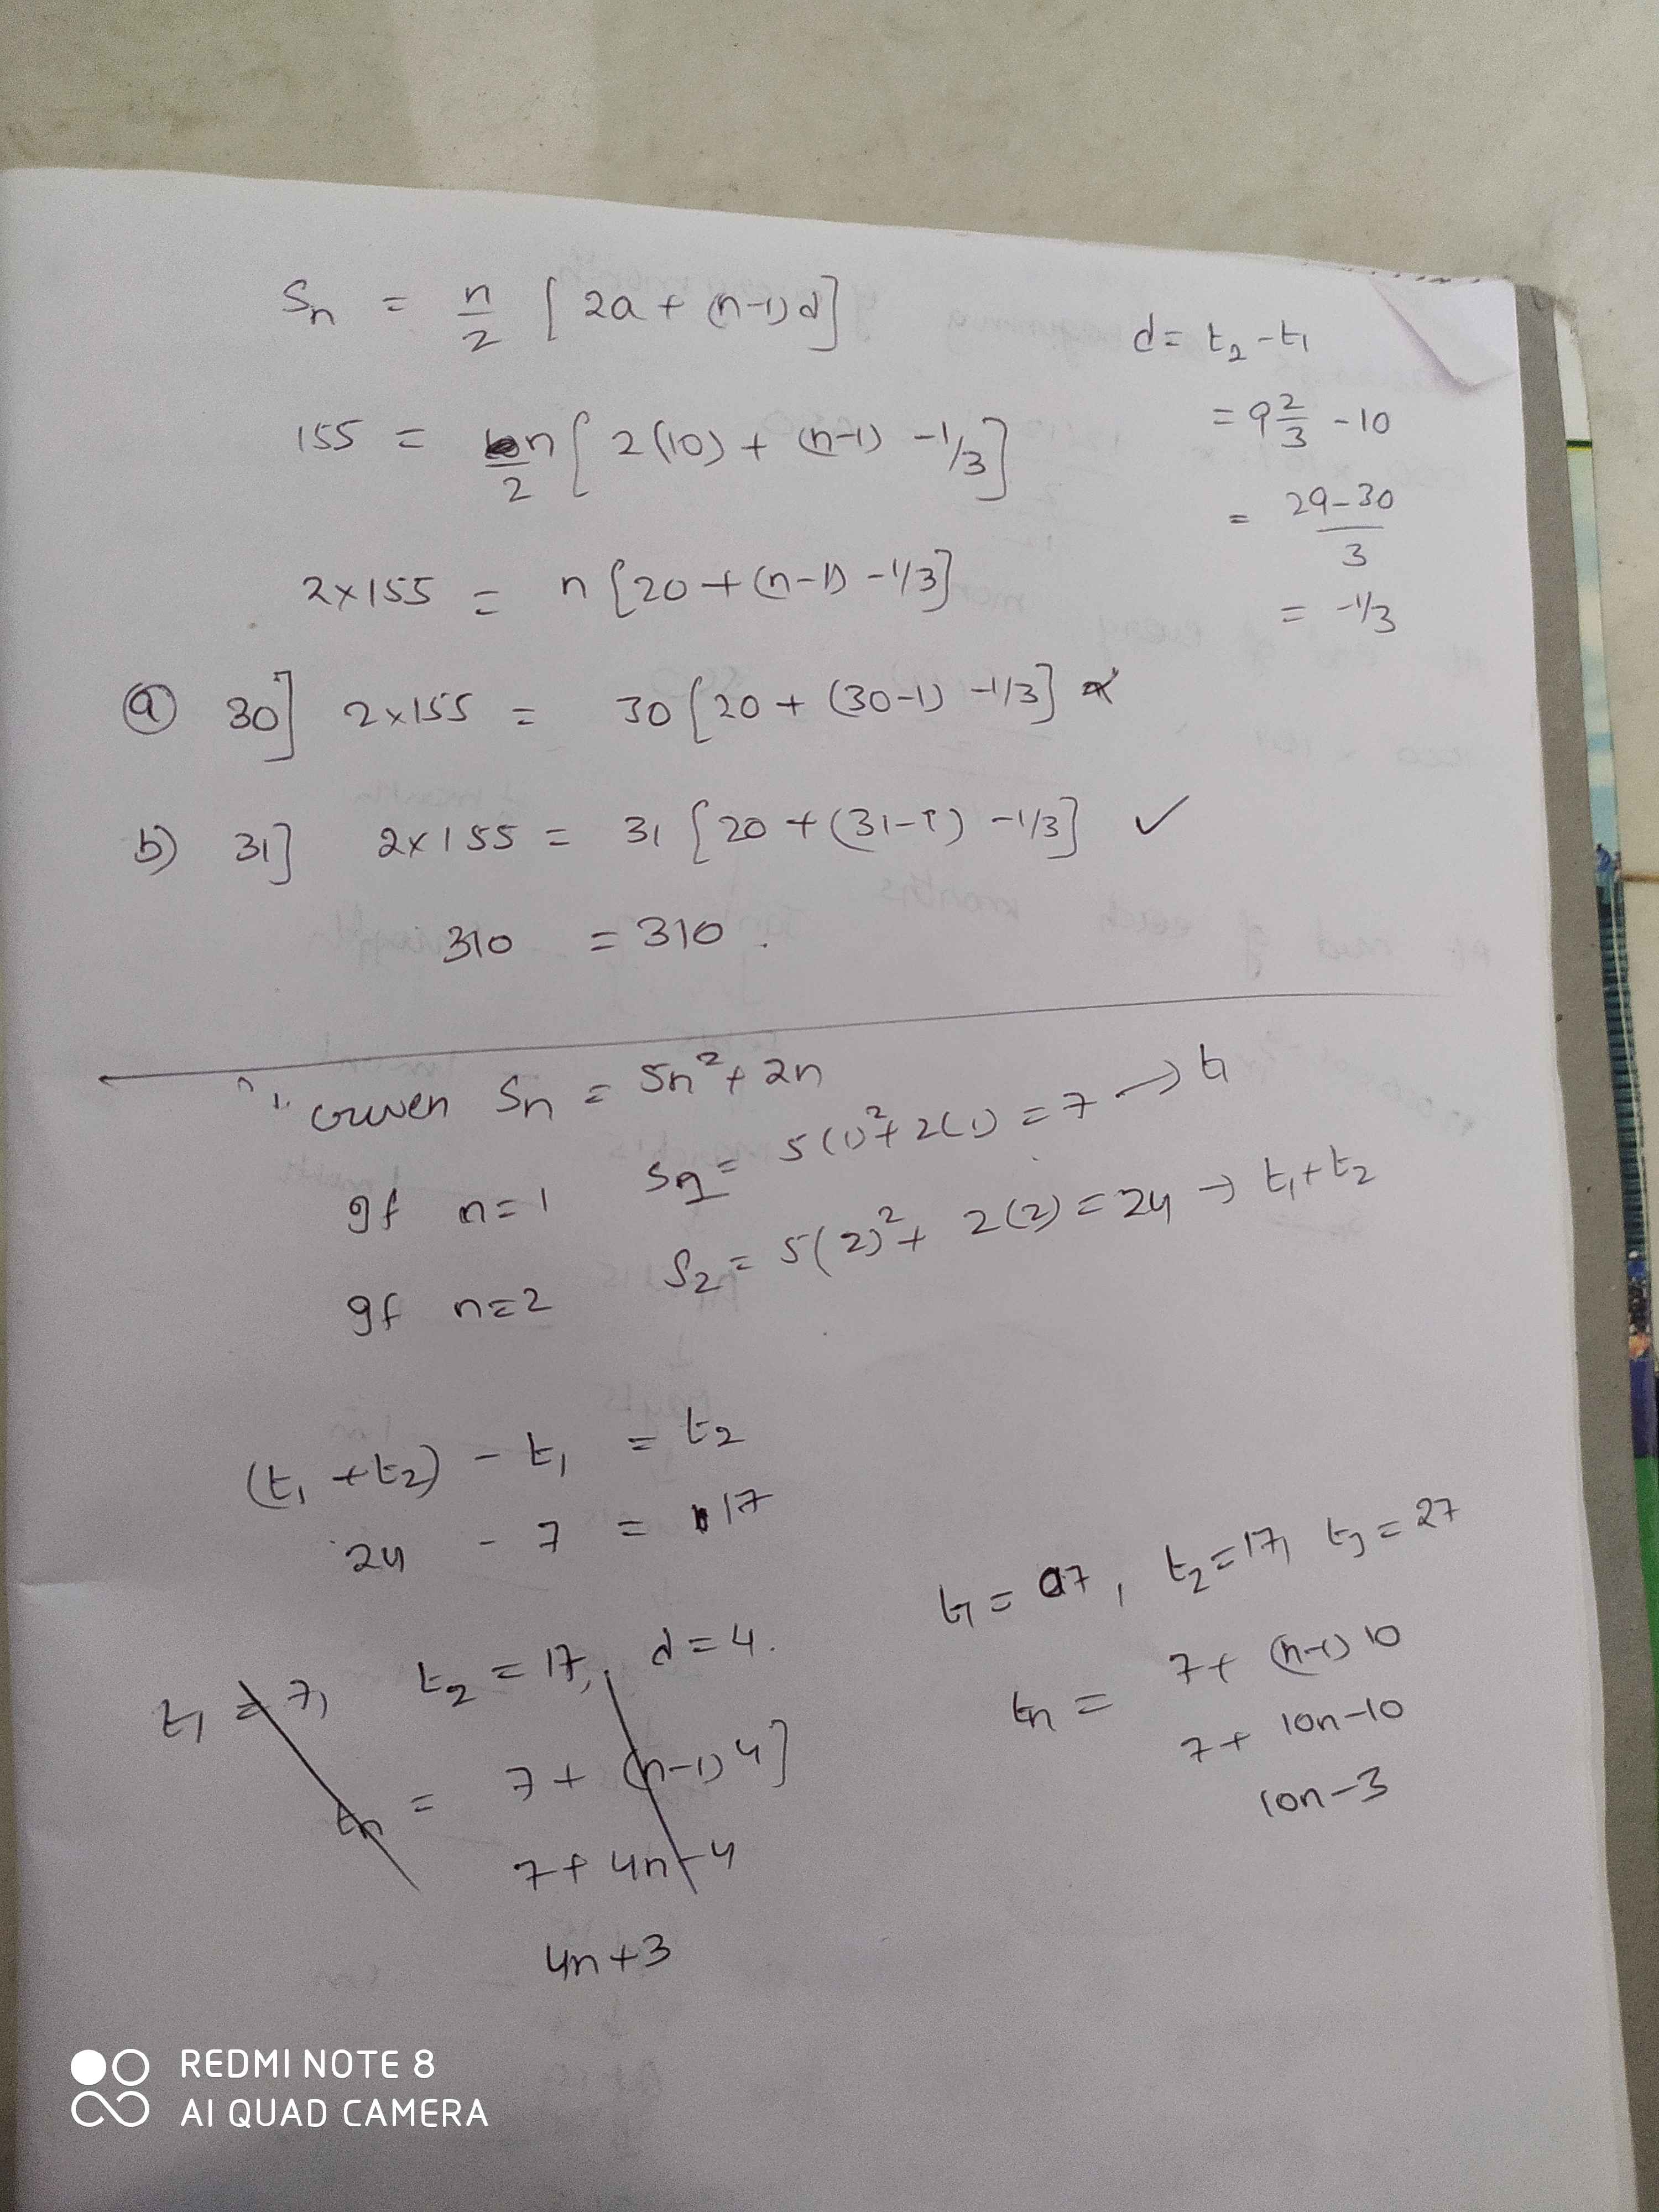 Sn = n/2 [2a + (n-1)d]
d = t2 - t1
= 9 2/3 - 10
= 29-30/3
= -1/3
155 = n/2 [2(10) + (n-1) -1/3]
2×155 = n[20 + (n-1) -1/3]
ⓐ 30] 2×155 = 30[20 + (30-1) -1/3] ×
b) 31] 2×155 = 31[20 + (31-1) -1/3] ✓
310 = 310.
Given Sn = 5n² + 2n
If n=1 S1 = 5(1)² + 2(1) = 7 → t1
If n=2 S2 = 5(2)² + 2(2) = 24 → t1+t2
(t1 + t2) - t1 = t2
24 - 7 = 17
t1 = 7, t2 = 17, d = 4.
tn = 7 + (n-1)4]
7 + 4n - 4
4n + 3
t1 = 7, t2 = 17, t3 = 27
tn = 7 + (n-1)10
7 + 10n - 10
10n - 3
REDMI NOTE 8
AI QUAD CAMERA